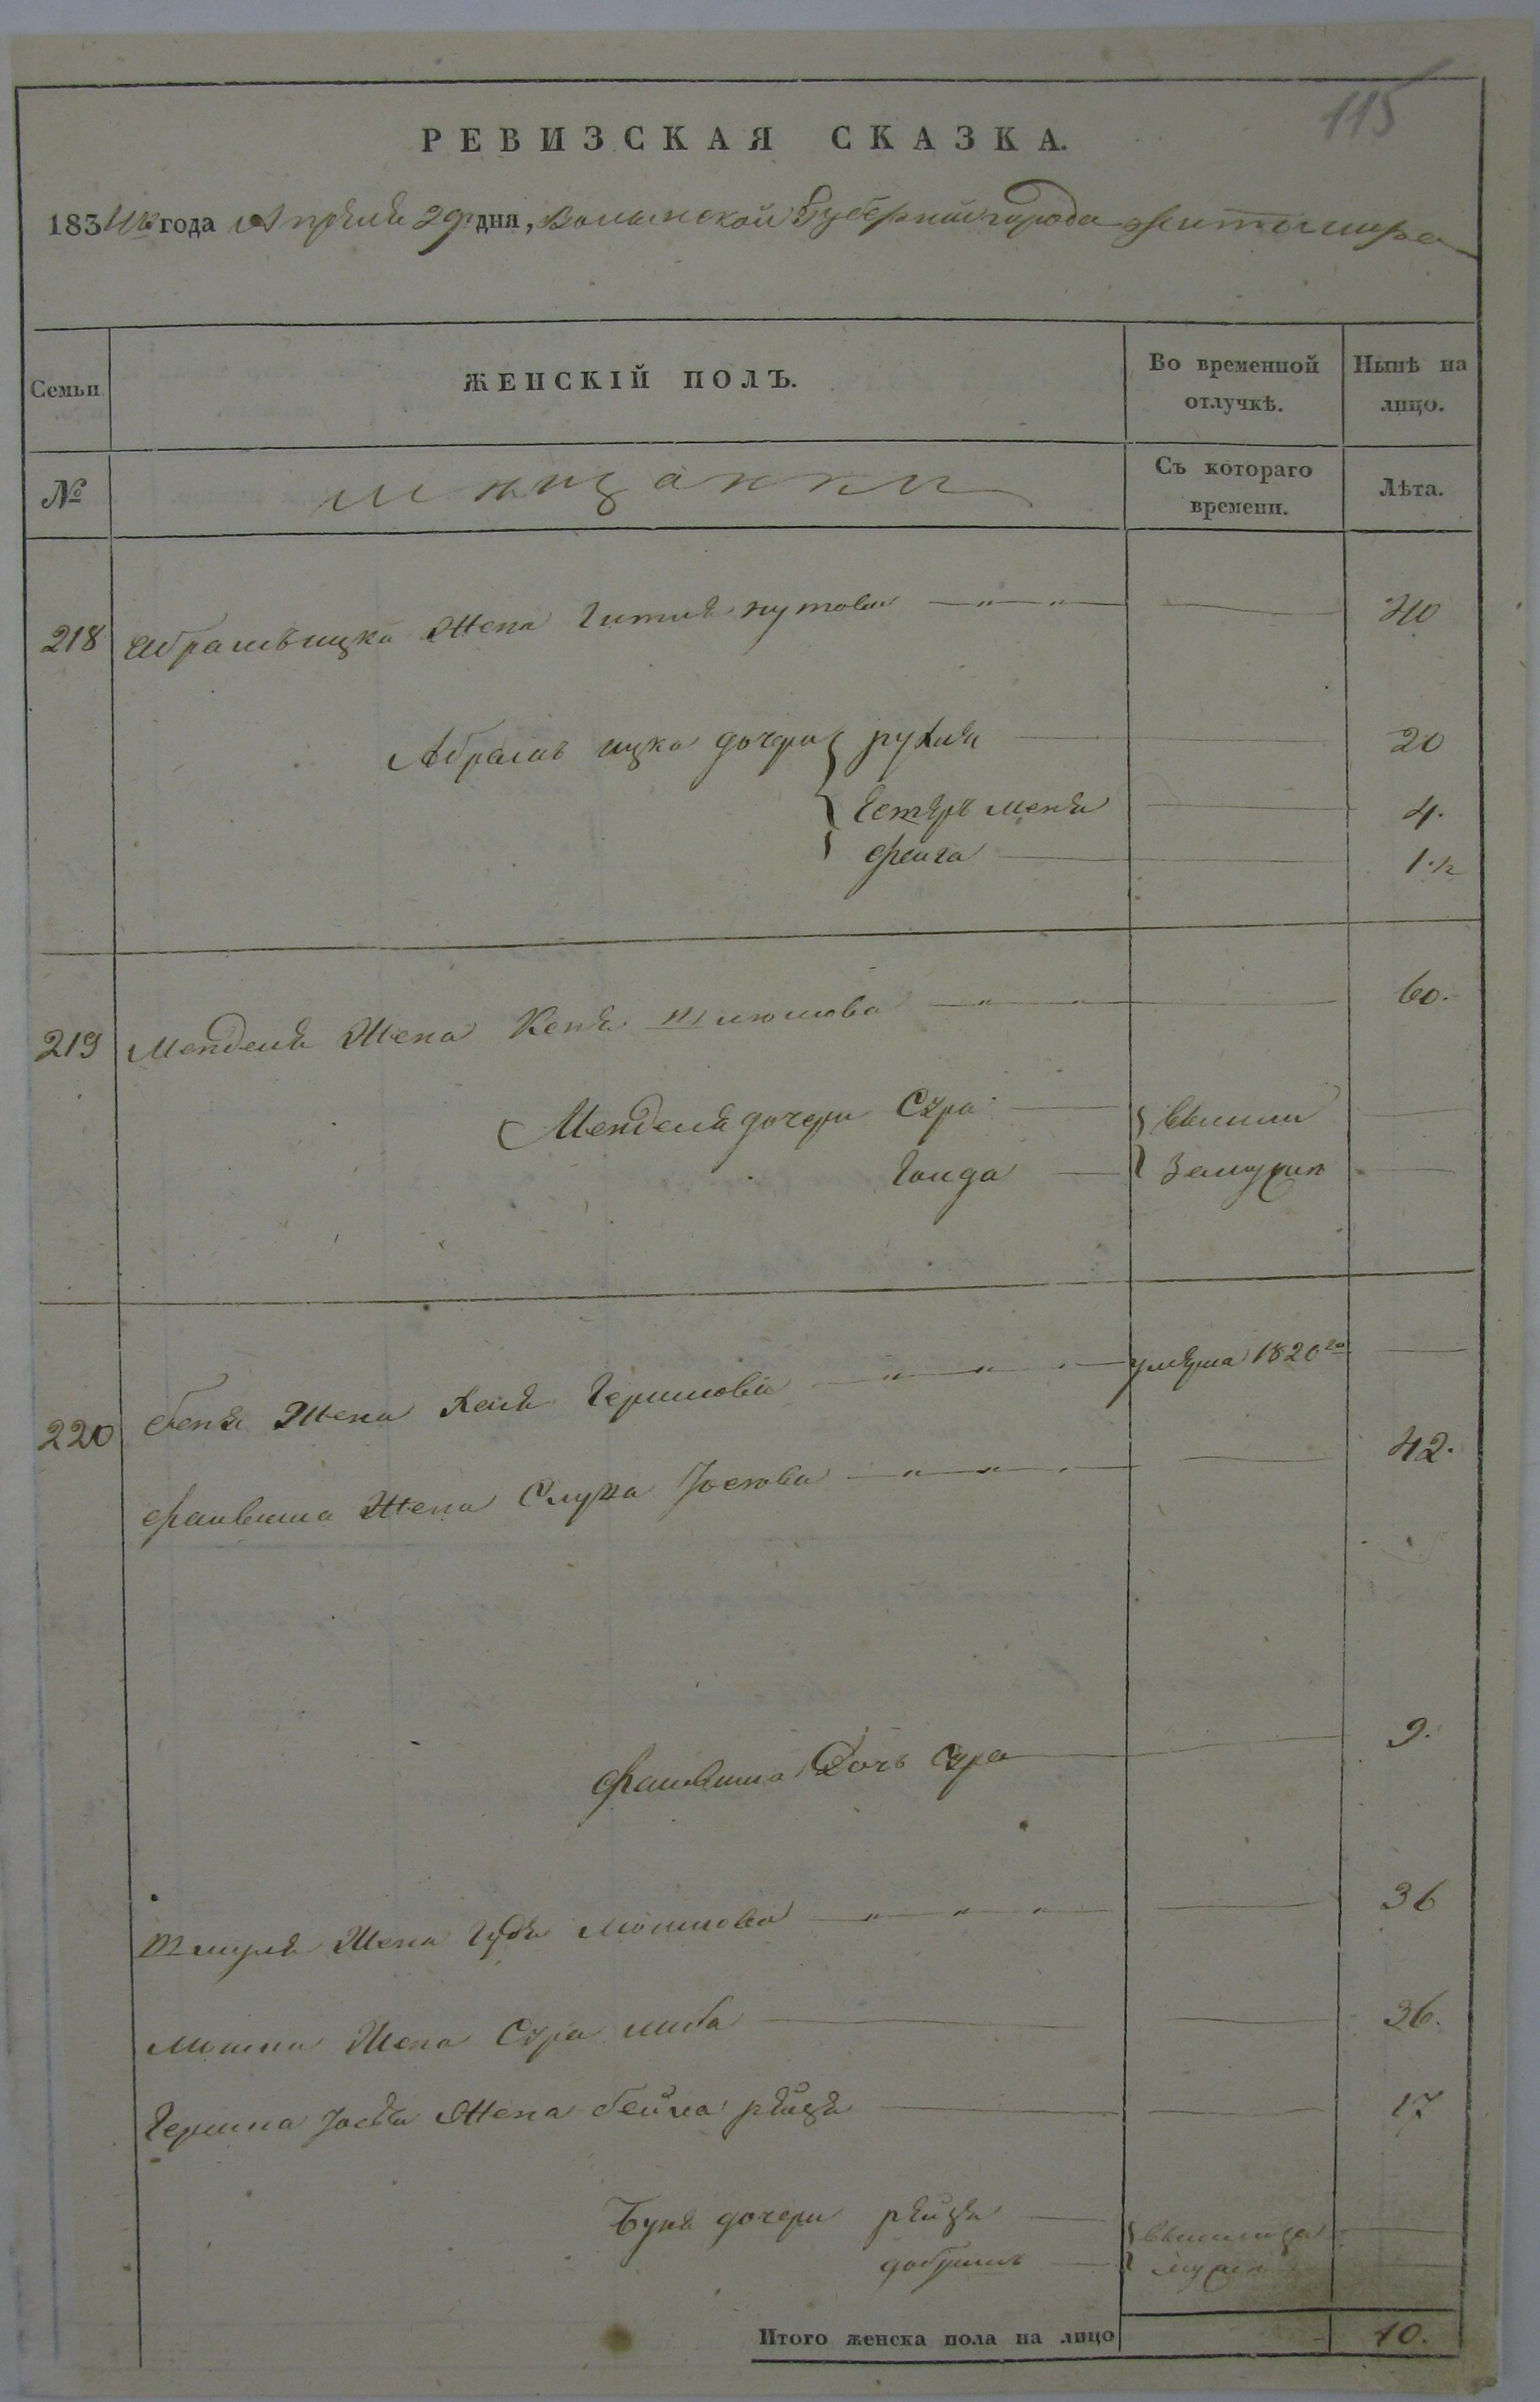 115
РЕВИЗСКАЯ СКАЗКА.
1834го года Апреля 29 дня, Волынской Губерний города Житомира
Семьи
ЖЕНСКІЙ ПОЛЪ.
Во временной
отлучкѣ.
Нынѣ на
лицо.
№
мещанки
Съ котораго
времени.
Лѣта.
218 Абрамъ ицка Жена Гитля 40
Абрамъ ицка дочери рухля 20
Естеръ меня 4.
фейга 1 1/2
219 Менделя Жена Кеня шлюмова 60.
Менделя дочери Сура вышли
Голда замужъ
220 беня Жена Хая Гершкова умерша 1820го
файвиша Жена Слува Iоскова 42.
файвиша Дочь Сура 9.
Шмуля Жена Гудя мошкова 36
мошка Жена Сура либа 36.
Гершка Iосья Жена бейла рейзя 17
Буня дочери рейзя вышли за
добришъ мужъ
Итого женска пола на лицо 10.